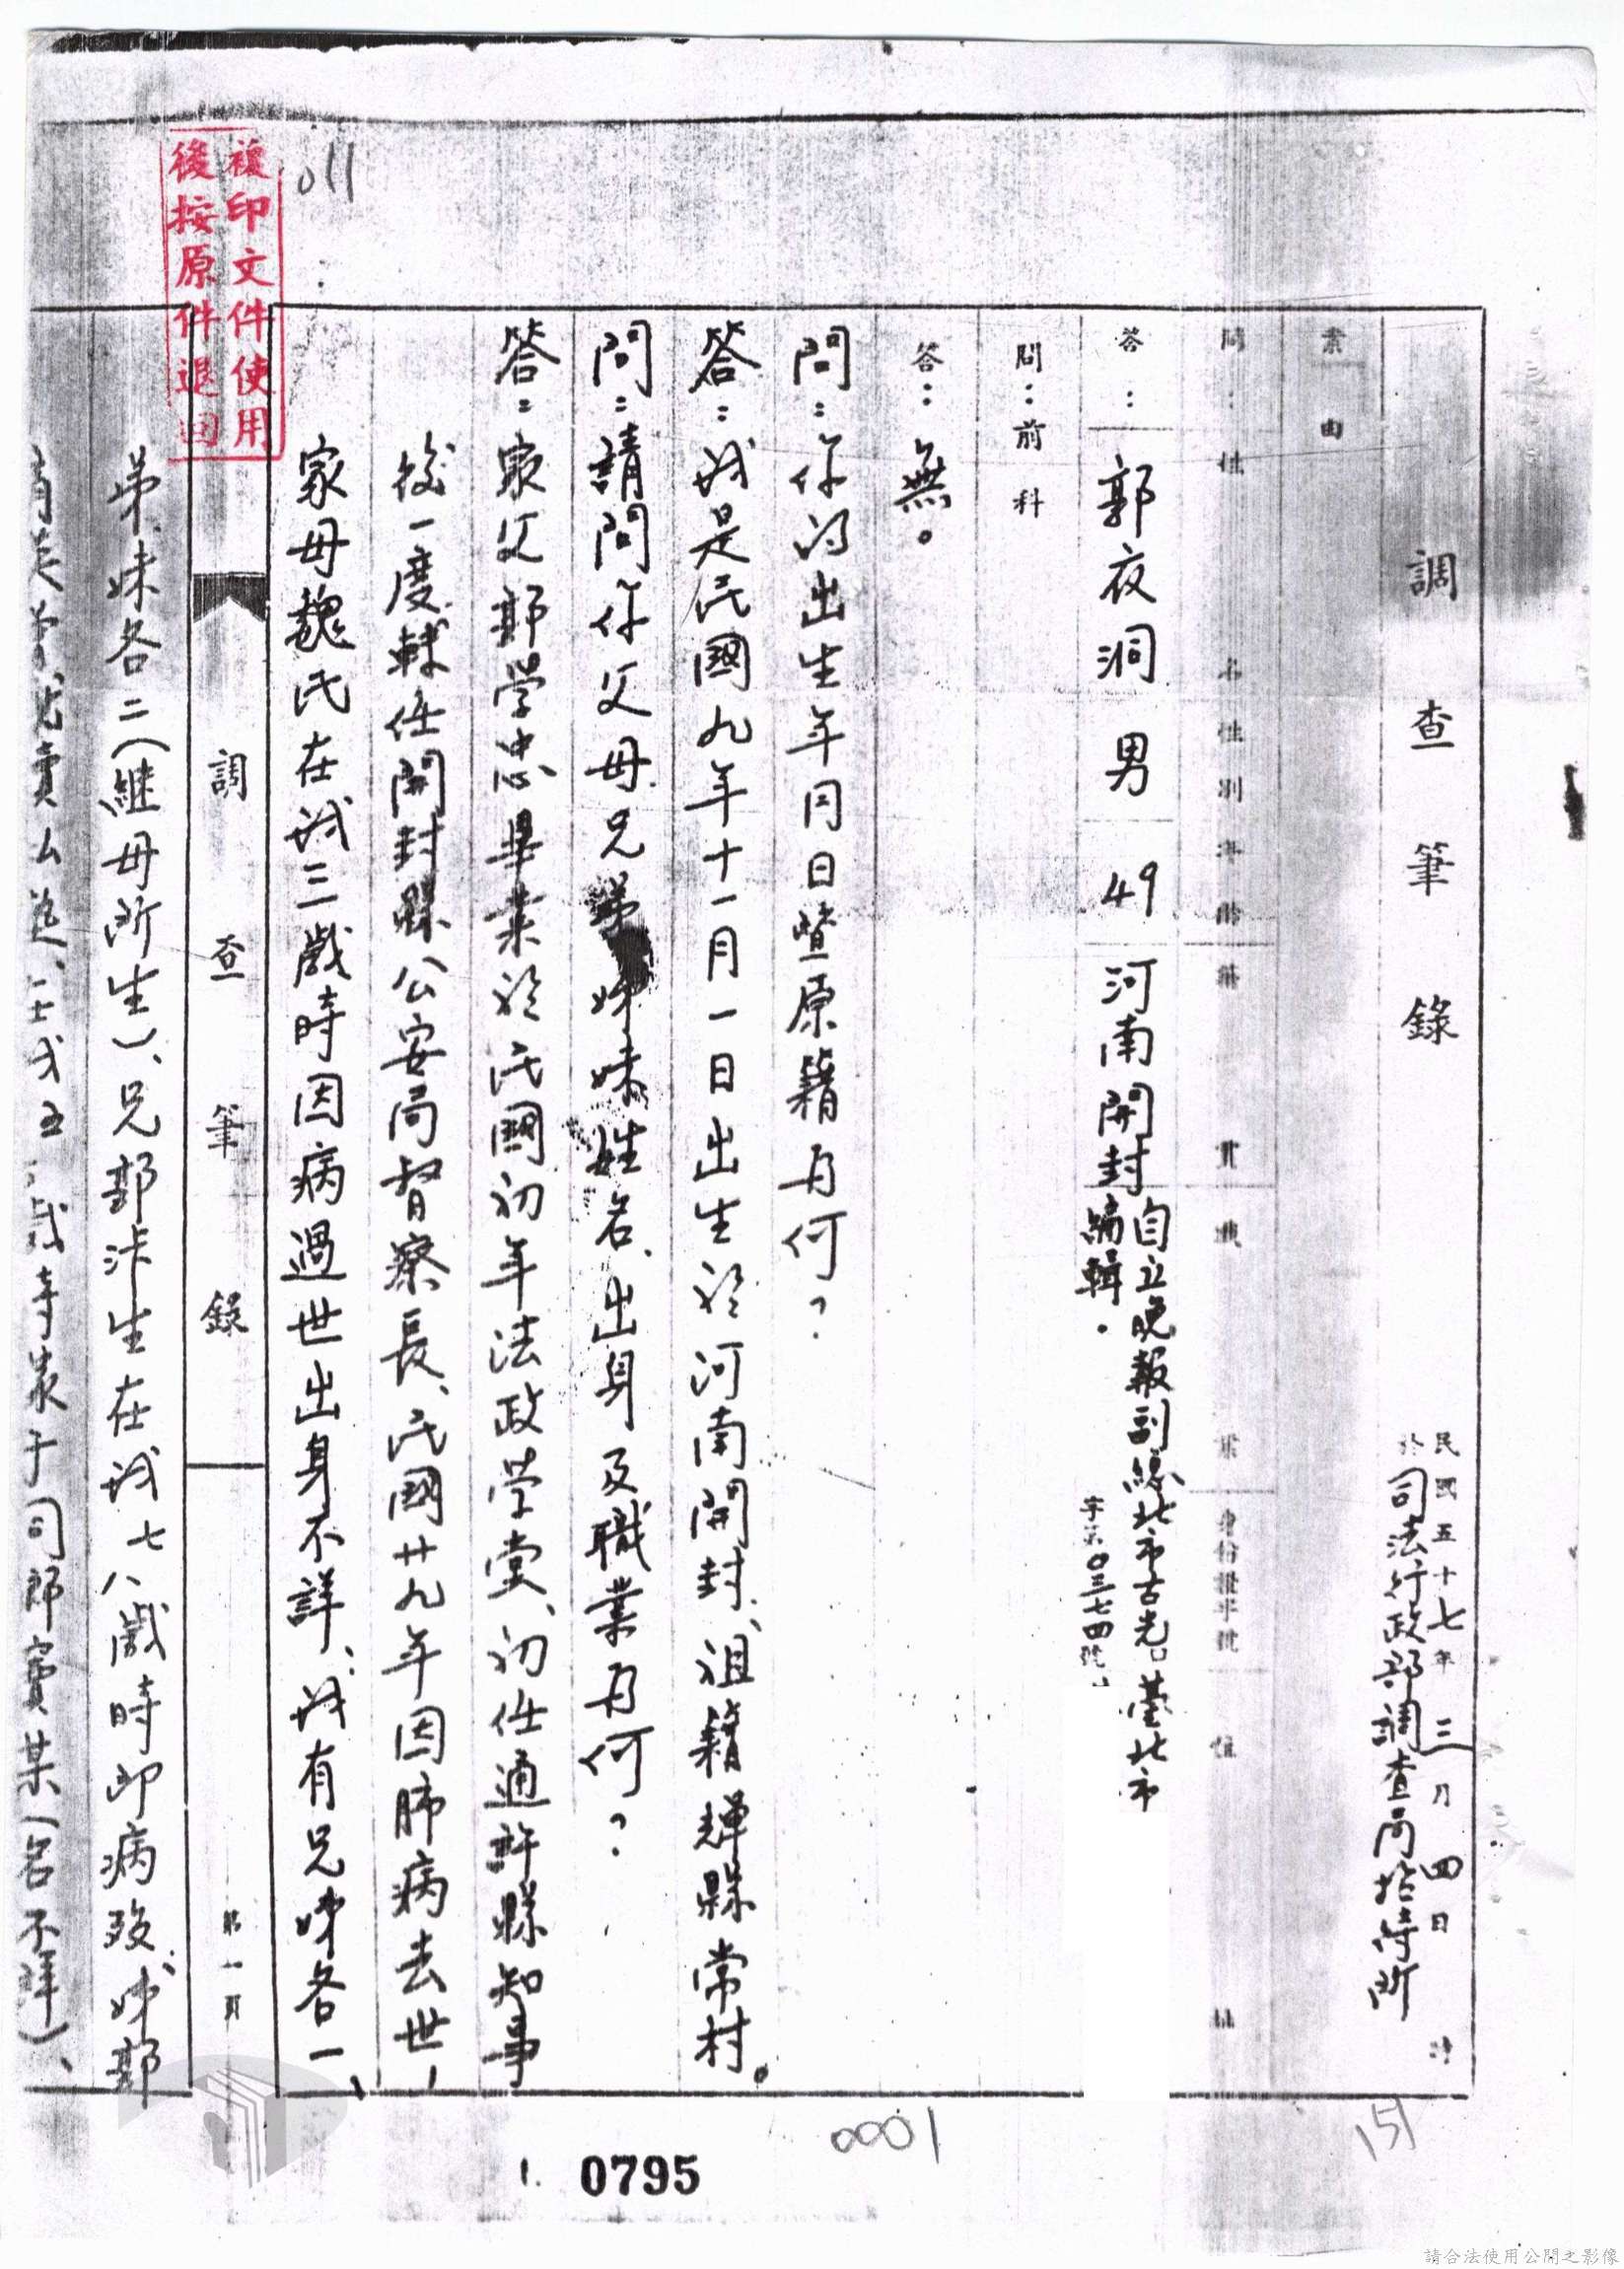 調查筆錄
民國五十七年三月四日 時
於司法行政部調查局招待所
案由
問：姓名性別年齡籍貫職業身份證字號住址
答：郭夜洞 男 49 河南開封 自立晚報副總編輯。北市古光字第〇三七四號 臺北市
問：前科
答：無。
問：你的出生年月日暨原籍為何？
答：我是民國九年十一月一日出生於河南開封、祖籍輝縣常村。
問：請問你父母兄弟姊妹姓名、出身及職業為何？
答：家父郭学忠畢業於民國初年法政学堂、初任通許縣知事
後一度轉任開封縣公安局督察長、民國廿九年因肺病去世、
家母魏氏在我三歲時因病過世出身不詳、我有兄姊各一、
調查筆錄
第一頁
弟、妹各二（繼母所生）、兄郭泮生在我七八歲時即病歿、姊郭
歲時嫁于司郎寨某（名不詳）、
複印文件使用
後按原件退回
011
151
0001
1. 0795
請合法使用公開之影像